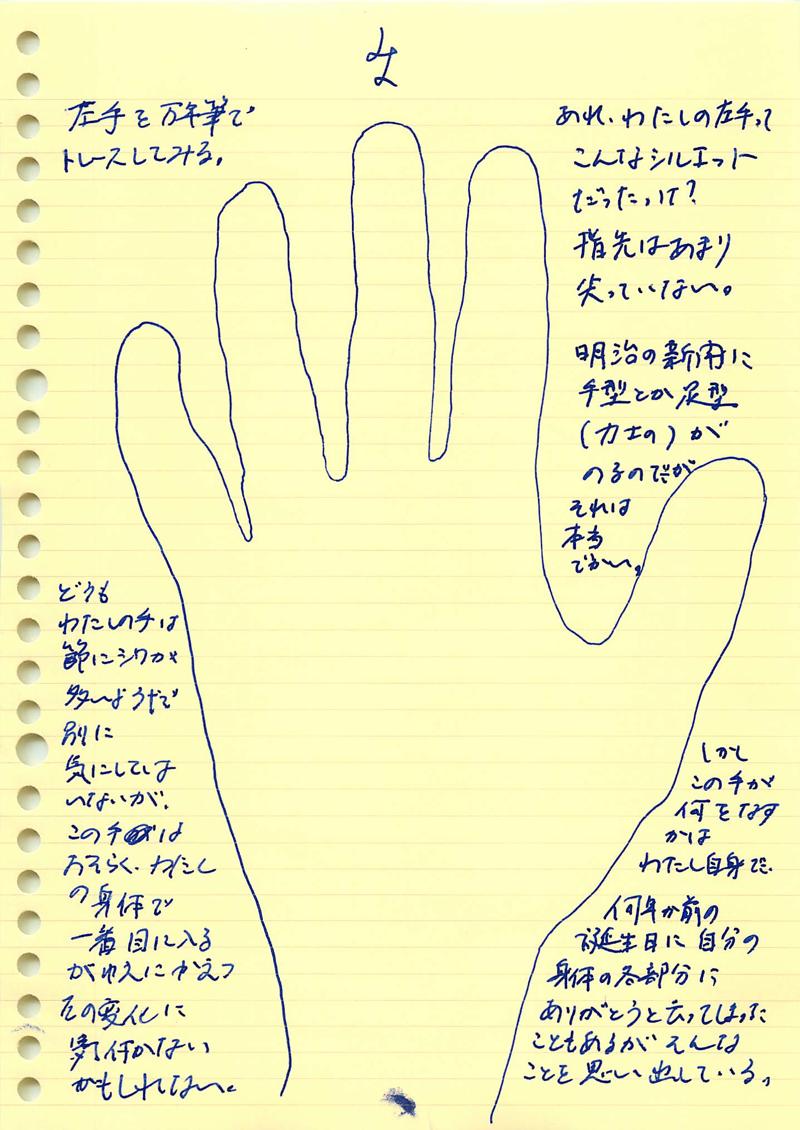 左手を万年筆で
トレースしてみる。
あれ、わたしの左手って
こんなシルエット
だったっけ?
指先はあまり
尖っていない。
明治の新聞に
手型とか足型
(力士の)が
のるのだが
それは
本当
でかい。
どうも
わたしの手は
節にシワが
多いようだで
別に
気にしては
いないが、
この手は
おそらく、わたし
の身体で
一番目に入る
がゆえにかえっ
その変化に
気付かない
かもしれない。
しかし
この手が
何をなす
かは
わたし自身で、
何年か前の
誕生日に自分の
身体の各部分に
ありがとうと云ってしまった
こともあるがそんな
ことを思い出している。